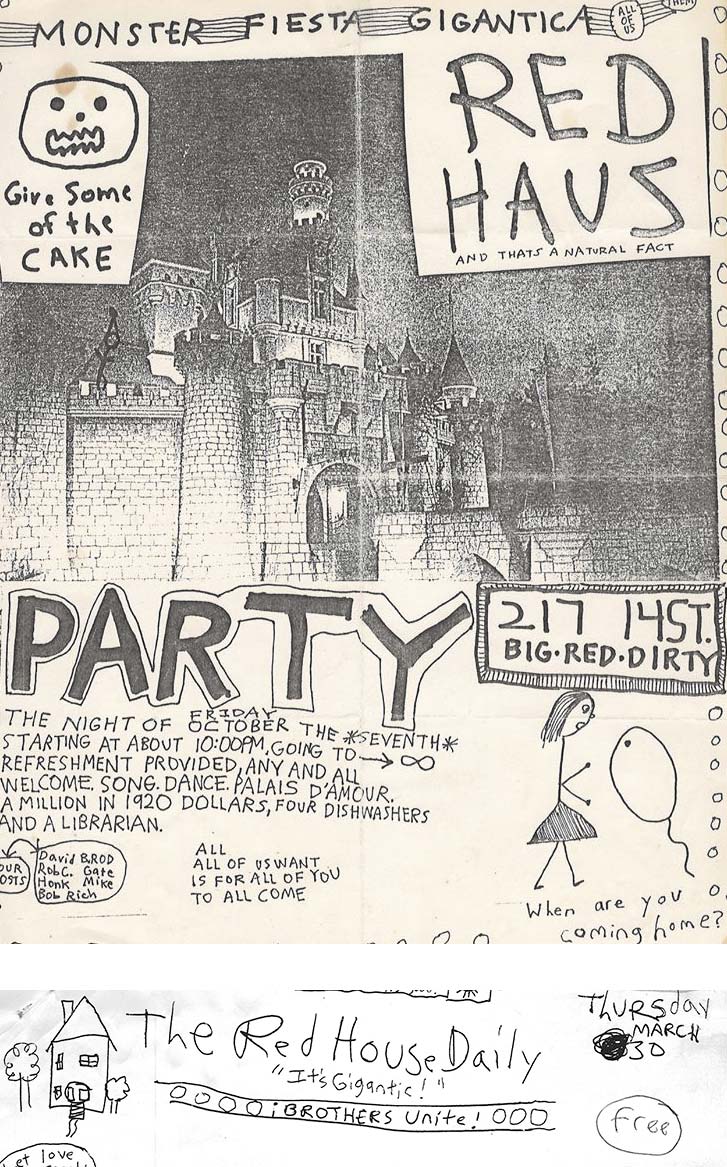 MONSTER FIESTA GIGANTICA
ALL OF US
THEM
RED
HAUS
AND THATS A NATURAL FACT
Give Some
of the
CAKE
PARTY
217 14ST.
BIG·RED·DIRTY
THE NIGHT OF FRIDAY OCTOBER THE *SEVENTH*
STARTING AT ABOUT 10:00PM, GOING TO → ∞
REFRESHMENT PROVIDED, ANY AND ALL
WELCOME. SONG. DANCE. PALAIS D'AMOUR.
A MILLION IN 1920 DOLLARS, FOUR DISHWASHERS
AND A LIBRARIAN.
David B. ROD
Rob C. Gate
Honk Mike
Bob Rich
ALL
ALL OF US WANT
IS FOR ALL OF YOU
TO ALL COME
When are you
coming home?
The Red House Daily
"It's Gigantic!"
¡BROTHERS Unite!
THURSday
MARCH
30
free
love